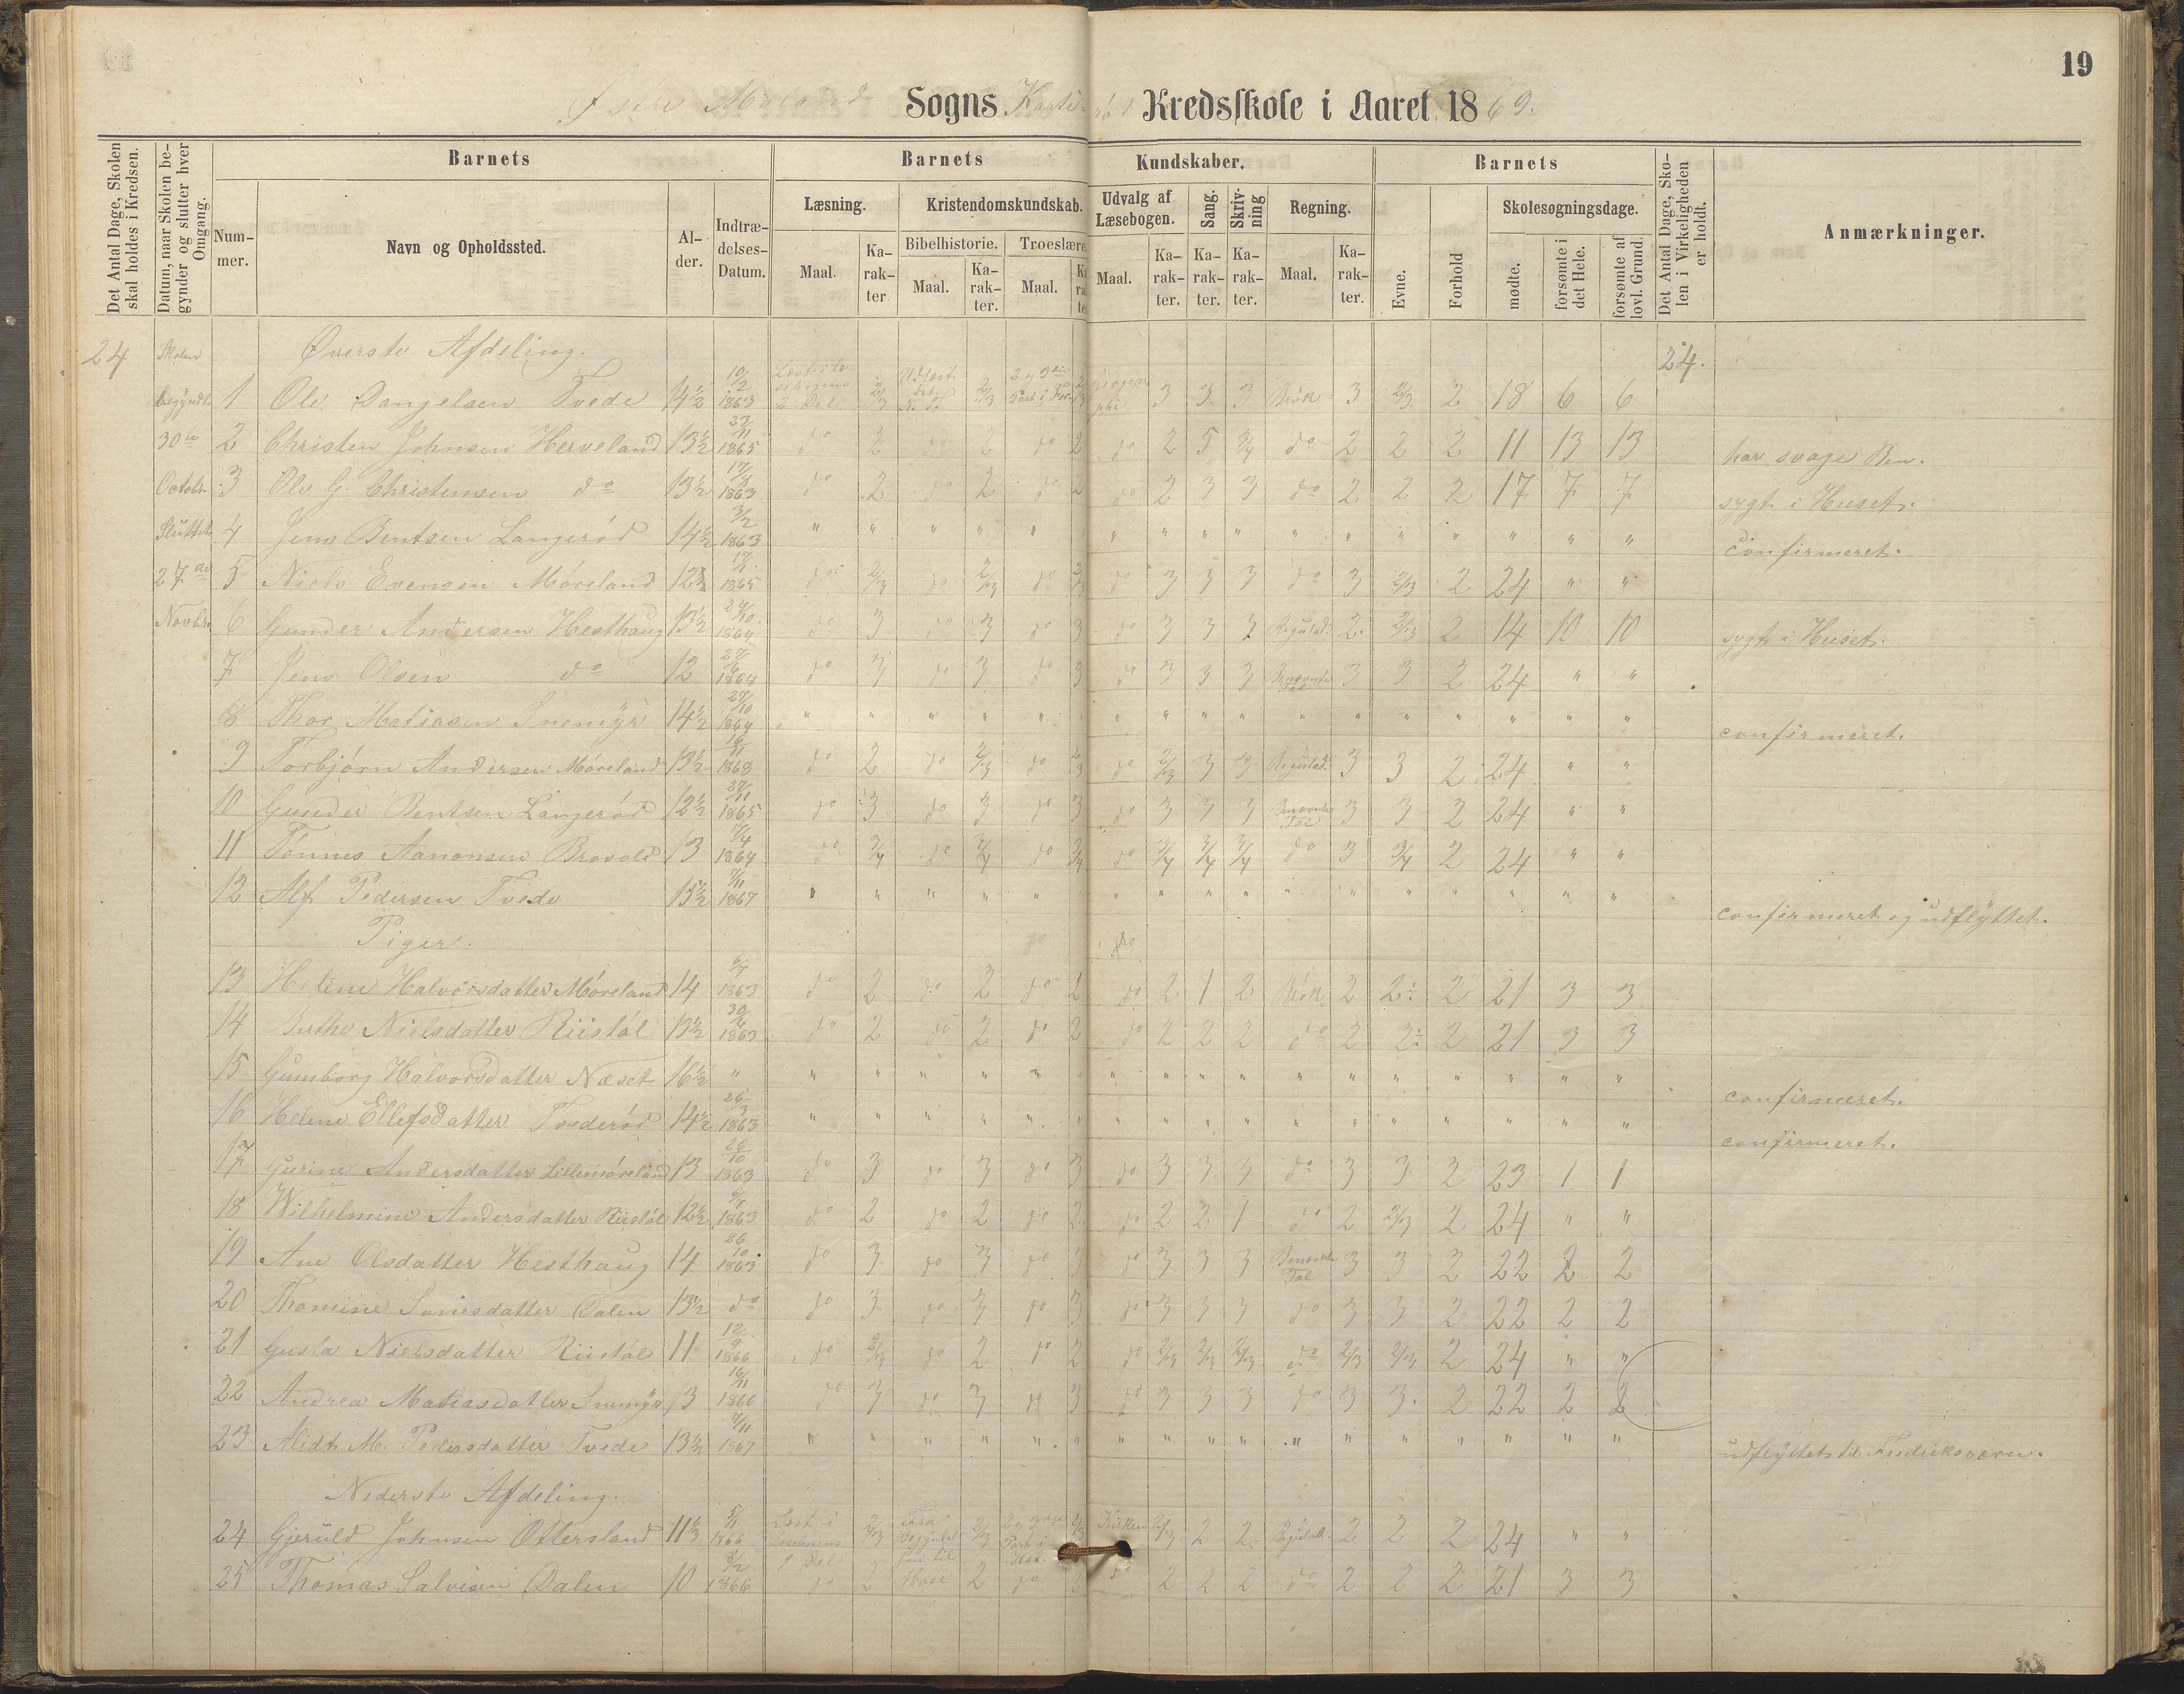 19
Østre Molands Sogns Kredsskole i Aaret 1869.
Det Antal Dage, Skolen skal holdes i Kredsen.
Datum, naar Skolen begynder og slutter hver Omgang.
Barnets
Nummer.
Navn og Opholdssted.
Alder.
Indtrædelses-Datum.
Barnets Kundskaber.
Læsning.
Maal.
Karakter
Kristendomskundskab.
Bibelhistorie.
Maal.
Karakter.
Troeslære.
Maal.
Karakter
Udvalg af Læsebogen.
Maal.
Karakter.
Sang.
Karakter.
Skrivning
Karakter.
Regning.
Maal.
Karakter.
Barnets
Evne.
Forhold
Skolesøgningsdage.
mødte.
forsømte i det Hele.
forsømte af lovl. Grund.
Det Antal Dage, Skolen i Virkeligheden er holdt.
Anmærkninger.
24 Skolen Øverste Afdeling. 24.
begyndte 1 Ole Danjelsen Tvede 14½ 10/2 1863 2/3 2/3 2/3 3 3 3 Brøk 3 2/3 2 18 6 6
30te 2 Christen Johnsen Herveland 13½ 23/11 1865 do 2 do 2 do 2 do 2 5 3/4 do 2 2 2 11 13 13 har svage Ben.
Octobr. 3 Ole G. Christensen do 13½ 1863 do 2 do 2 do 2 do 2 3 3 do 2 2 2 17 7 7 sygt i Huset.
Sluttet 4 Jens Bentsen Langerød 14½ 3/2 1863 " " " " " " " " " " " " " " " " " confirmeret.
27de 5 Niels Evensen Møreland 12½ 1865 do 2/3 do 2/3 do 2/3 do 3 3 3 do 3 2/3 2 24 " "
Novbr. 6 Gunder Andersen Hesthaug 13½ 24/10 1864 do 3 do 3 do 3 do 3 3 3 Regulad. 2 2/3 2 14 10 10 sygt i Huset.
7 Jens Olsen do 12 27/6 1864 do 3 do 3 do 3 do 3 3 3 Benævnte Tal 3 3 2 24 " "
8 Thor Matiasen Snemyr 14½ 24/10 1864 " " " " " " " " " " " " " " " " " confirmeret.
9 Torbjørn Andersen Møreland 13½ 16/11 1868 do 2 do 2/3 do 2/3 do 2/3 3 3 Regulad. 3 3 2 24 " "
10 Gunder Bentsen Langerød 12½ 27/11 1865 do 3 do 3 do 3 do 3 3 3 Benævnte Tal 3 3 2 24 " "
11 Tønnes Aanonsen Brovold 13 6/4 1864 do 3/4 do 3/4 do 3/4 do 3/4 3/4 3/4 do 3 3/4 2 24 " "
12 Alf Pedersen Tvede 15½ 7/11 1867 " " " " " " " " " " " " " " " " " confirmeret og udflyttet.
Piger.
13 Helene Halvorsdatter Møreland 14 6/7 1863 do 2 do 2 do 2 do 2 1 2 Brøk 2 2÷ 2 21 3 3
14 Berthe Nielsdatter Riistøl 13½ 30/6 1863 do 2 do 2 do 2 do 2 2 2 do 2 2÷ 2 21 3 3
15 Gunborg Halvorsdatter Næset 16½ " " " " " " " " " " " " " " " " " " confirmeret.
16 Helene Ellefsdatter Tvederød 14½ 26/3 1863 " " " " " " " " " " " " " " " " " confirmeret.
17 Gurine Andersdatter Lillemøreland 13 26/10 1863 do 3 do 3 do 3 do 3 3 3 do 3 3 2 23 1 1
18 Wilhelmine Andersdatter Riistøl 12½ 6/7 1863 do 2 do 2 do 2 do 2 2 1 do 2 2/3 2 24 " "
19 Ane Olsdatter Hesthaug 14 26/10 1863 do 3 do 3 do 3 do 3 3 3 Benævnte Tal 3 3 2 22 2 2
20 Thomine Sørensdatter Dalen 13½ do do 3 do 3 do 3 do 3 3 3 do 3 3 2 22 2 2
21 Gusta Nielsdatter Riistøl 11 12/9 1866 do 2/3 do 2 do 2 do 2/3 2/3 2/3 do 2/3 2/3 2 24 " "
22 Andrea Matiasdatter Snemyr 13 16/11 1866 do 3 do 3 do 3 do 3 3 3 do 3 3 2 22 2 2
23 Alidt M. Pedersdatter Tvede 13½ 7/11 1867 " " " " " " " " " " " " " " " " " udflyttet til Fredriksværn.
Nederste Afdeling.
24 Gjeruld Johnsen Ottersland 11⅓ 1866 2/3 2/3 2/3 2/3 2 2 Regulad. 2 2 2 24 " "
25 Thomas Salvesen Dalen 10 8/2 1866 do 2 2 do do 2 2 2 do 2 2 2 21 3 3